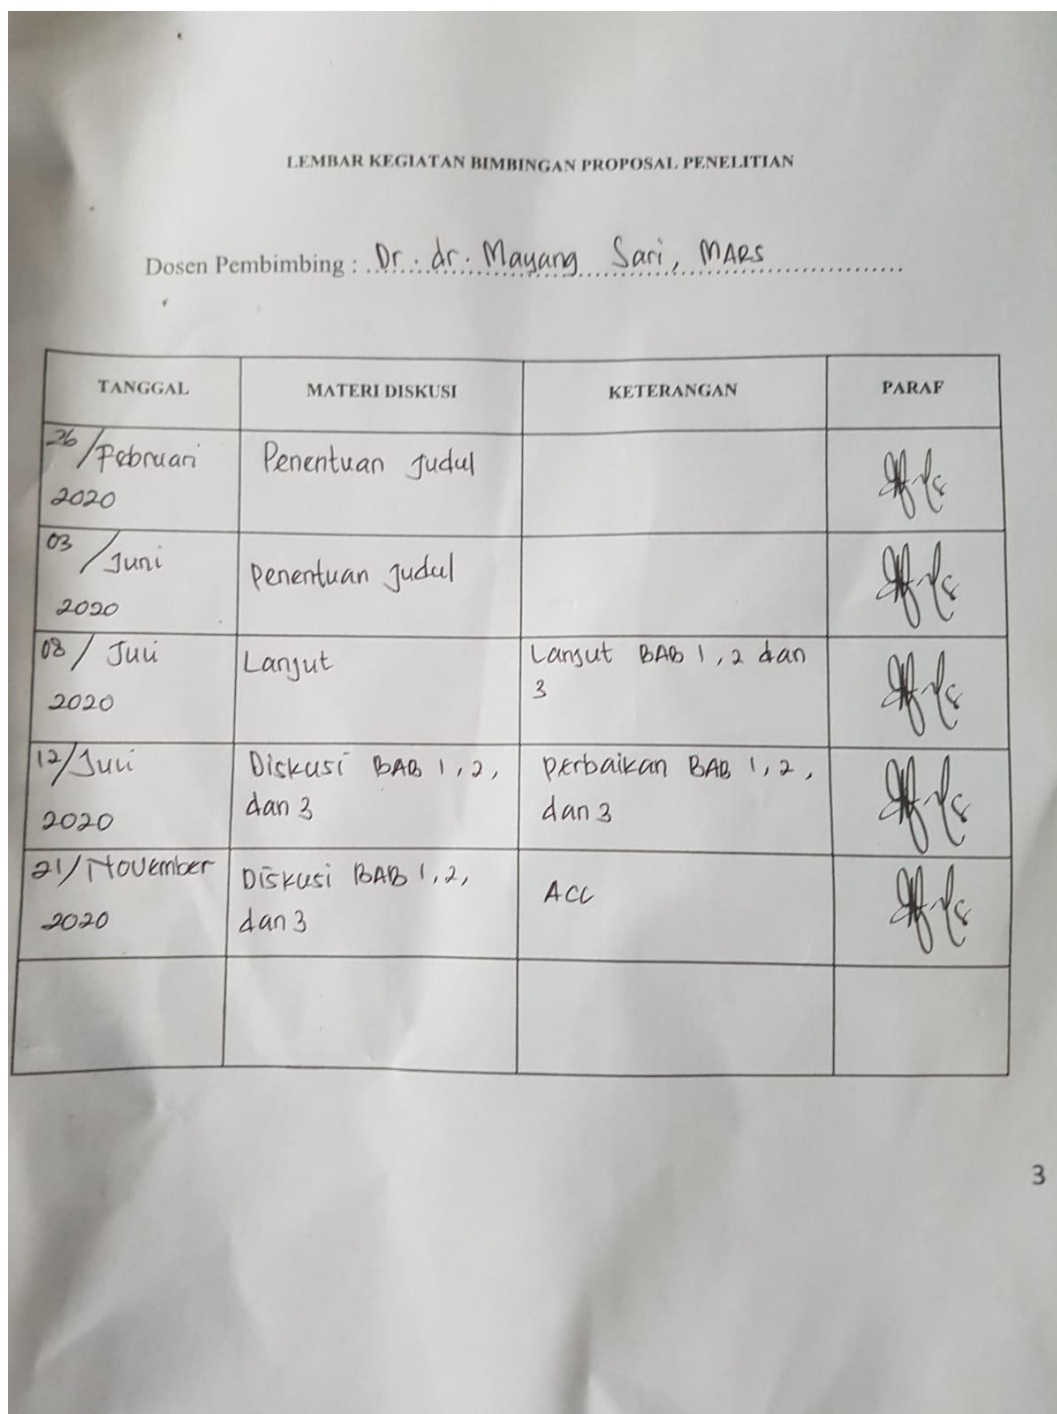 LEMBAR KEGIATAN BIMBINGAN PROPOSAL PENELITIAN
Dosen Pembimbing : Dr. dr. Mayang Sari, MARS
TANGGAL MATERI DISKUSI KETERANGAN PARAF
26/Februari
2020
Penentuan Judul
03/Juni
2020
Penentuan Judul
08/Juli
2020
Lanjut
Lanjut BAB 1, 2 dan
3
12/Juli
2020
Diskusi BAB 1, 2,
dan 3
Perbaikan BAB 1, 2,
dan 3
21/November
2020
Diskusi BAB 1, 2,
dan 3
ACC
3